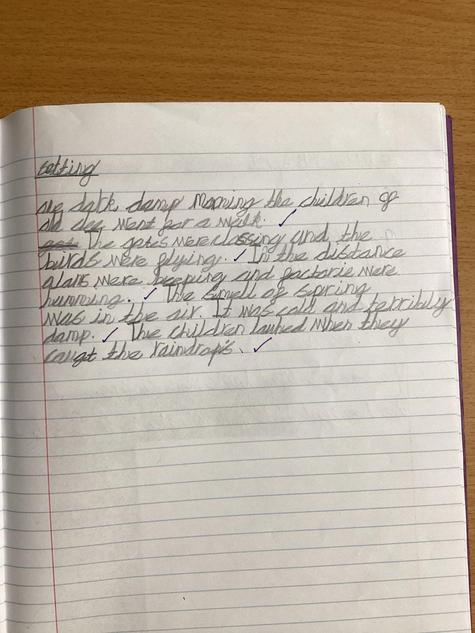 setting
one dark damp Morning the children of
old deg went for a walk.
the gates were clossing and the
birds were flying. In the distance
alars were beeping and factorie were
humming. The smell of spring
was in the air. It was cold and terribly
damp. The children lauhed when they
caugt the raindrops.